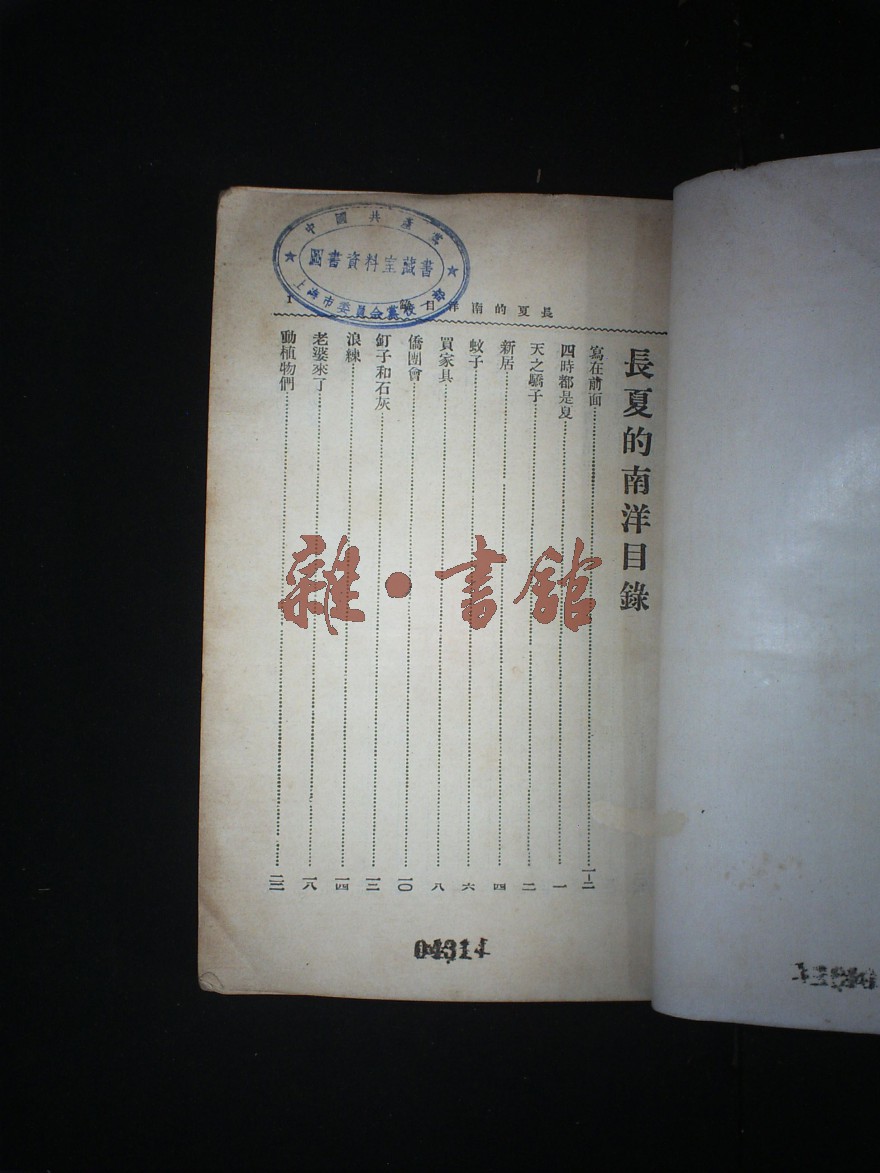 長夏的南洋目錄 1
長夏的南洋目錄
寫在前面 一-二
四時都是夏 一
天之驕子 二
新居 四
蚊子 六
買家具 八
僑團會 一〇
釘子和石灰 一二
浪練 一四
老婆來丁 一八
動植物們
中國共產黨
圖書資料室藏書
上海市委員會黨校
雜·書館
04314